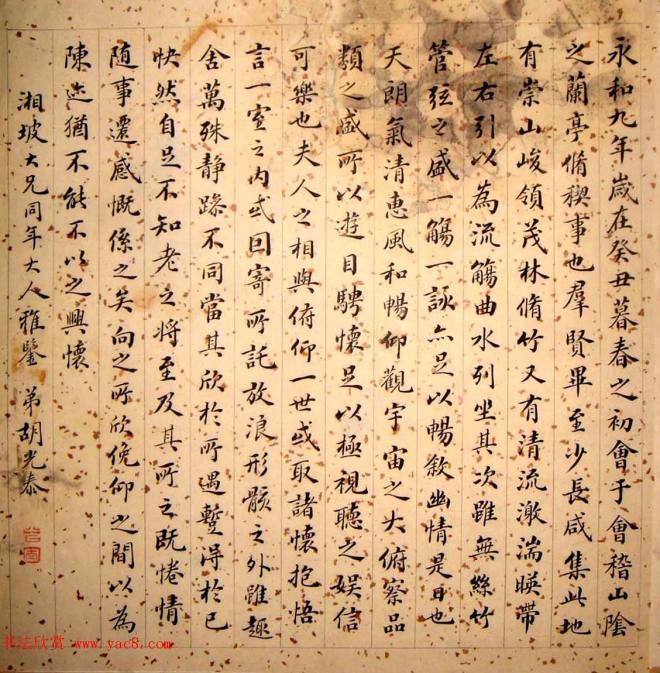 永和九年歲在癸丑暮春之初會于會稽山陰
之蘭亭脩稧事也羣賢畢至少長咸集此地
有崇山峻領茂林脩竹又有清流激湍暎帶
左右引以為流觴曲水列坐其次雖無絲竹
管弦之盛一觴一詠亦足以暢敘幽情是日也
天朗氣清惠風和暢仰觀宇宙之大俯察品
類之盛所以遊目騁懷足以極視聽之娛信
可樂也夫人之相與俯仰一世或取諸懷抱悟
言一室之內或因寄所託放浪形骸之外雖趣
舍萬殊靜躁不同當其欣於所遇蹔淂於己
快然自足不知老之將至及其所之既惓情
随事遷感慨係之矣向之所欣俛仰之間以為
陳迹猶不能不以之興懷
湘坡大兄同年大人雅鑒 弟胡光泰
书法欣赏 www.yac8.com